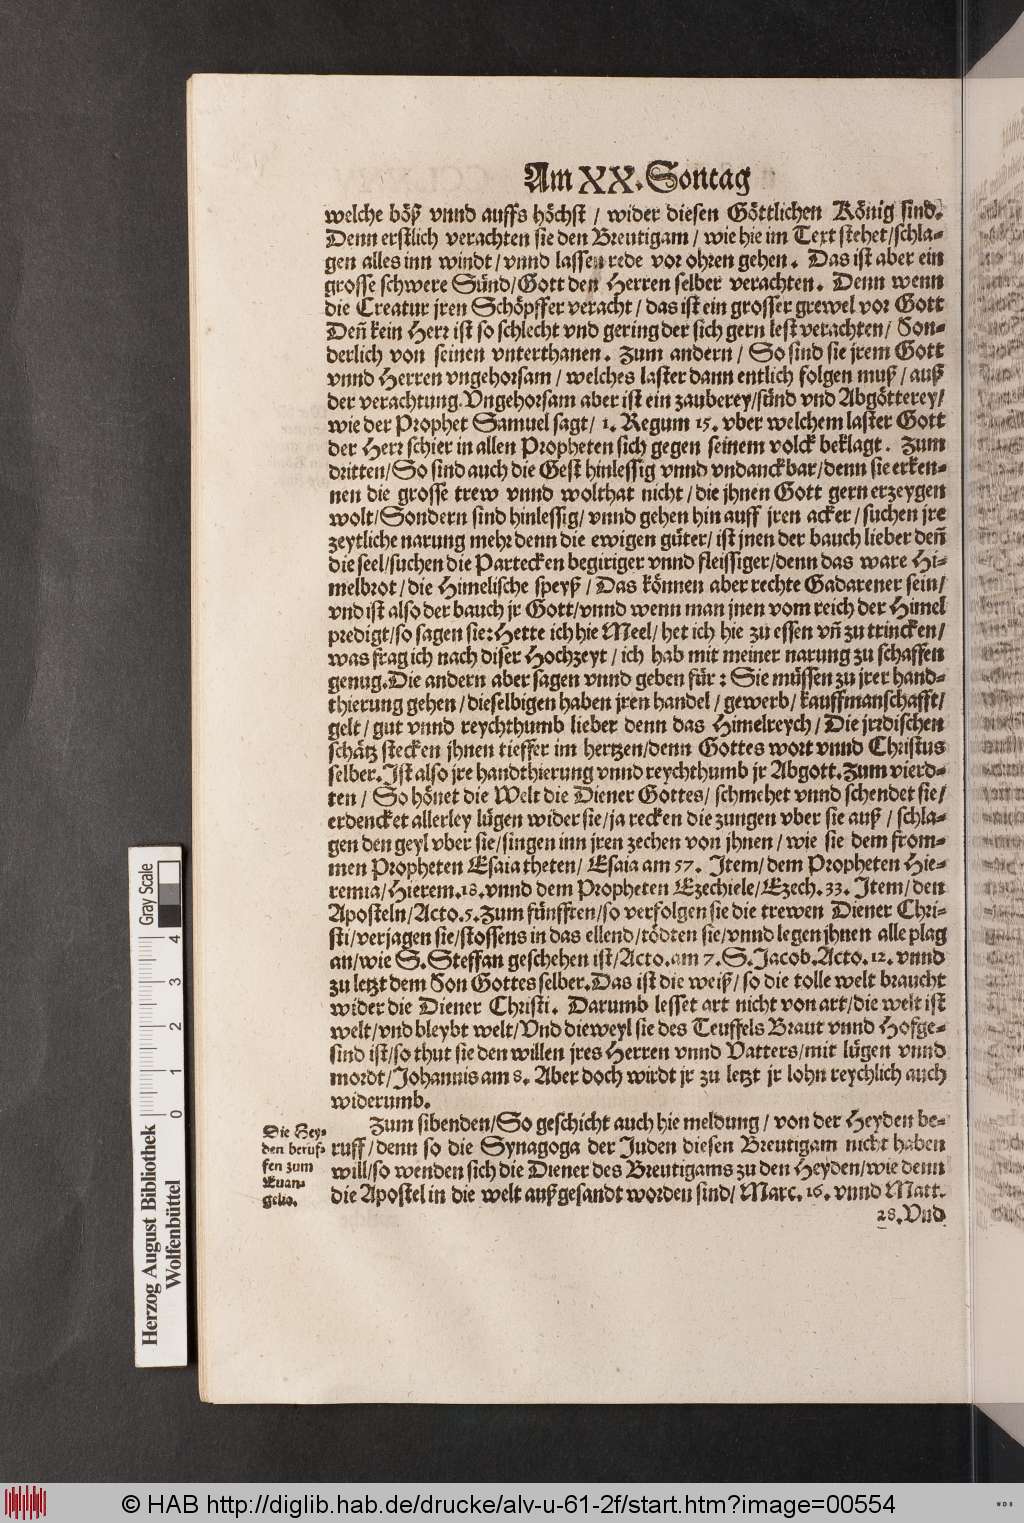 Am XX. Sontag
welche böß vnnd auffs höchst / wider diesen Göttlichen König sind.
Denn erstlich verachten sie den Breutigam / wie hie im Text stehet/schla-
gen alles inn windt/ vnnd lassen rede vor ohren gehen. Das ist aber ein
grosse schwere Sünd/Gott den Herren selber verachten. Denn wenn
die Creatur jren Schöpffer veracht / das ist ein grosser grewel vor Gott
Deñ kein Herr ist so schlecht vnd gering der sich gern lest verachten/ Son-
derlich von seinen vnterthanen. Zum andern / So sind sie jrem Gott
vnnd Herren vngehorsam / welches laster dann entlich folgen muß / auß
der verachtung. Vngehorsam aber ist ein zauberey/sünd vnd Abgötterey/
wie der Prophet Samuel sagt/ 1. Regum 15. vber welchem laster Gott
der Herr schier in allen Propheten sich gegen seinem volck beklagt. Zum
dritten/So sind auch die Gest hinlessig vnnd vndanckbar/denn sie erken-
nen die grosse trew vnnd wolthat nicht / die jhnen Gott gern erzeygen
wolt/Sondern sind hinlessig/ vnnd gehen hin auff jren acker / suchen jre
zeytliche narung mehr denn die ewigen güter/ ist jnen der bauch lieber deñ
die seel/suchen die Partecken begiriger vnnd fleissiger/denn das ware Hi-
melbrot / die Himelische speyß / Das können aber rechte Gadarener sein/
vnd ist also der bauch jr Gott/vnnd wenn man jnen vom reich der Himel
predigt/so sagen sie: Hette ich hie Meel/ het ich hie zu essen vñ zu trincken/
was frag ich nach diser Hochzeyt / ich hab mit meiner narung zu schaffen
genug. Die andern aber sagen vnnd geben für : Sie müssen zu jrer hand-
thierung gehen / dieselbigen haben jren handel / gewerb/ kauffmanschafft/
gelt / gut vnnd reychthumb lieber denn das Himelreych / Die jrrdischen
schätz stecken jhnen tieffer im hertzen/denn Gottes wort vnnd Christus
selber. Ist also jre handthierung vnnd reychthumb jr Abgott. Zum vierd-
ten / So hönet die Welt die Diener Gottes/ schmehet vnnd schendet sie/
erdencket allerley lügen wider sie/ja recken die zungen vber sie auß / schla-
gen den geyl vber sie/singen inn jren zechen von jhnen / wie sie dem from-
men Propheten Esaia theten/ Esaia am 57. Item/ dem Propheten Hie-
remia/Hierem.18. vnnd dem Propheten Ezechiele/Ezech. 33. Item/ den
Aposteln/Acto.5. Zum fünfften/so verfolgen sie die trewen Diener Chri-
sti/verjagen sie/stossens in das ellend/tödten sie/vnnd legen jhnen alle plag
an/wie S. Steffan geschehen ist/Acto. am 7. S. Jacob. Acto. 12. vnnd
zu letzt dem Son Gottes selber. Das ist die weiß/ so die tolle welt braucht
wider die Diener Christi. Darumb lesset art nicht von art/die welt ist
welt/vnd bleybt welt/Vnd dieweyl sie des Teuffels Braut vnnd Hofge-
sind ist/so thut sie den willen jres Herren vnnd Vatters/mit lügen vnnd
mordt/Johannis am 8. Aber doch wirdt jr zu letzt jr lohn reychlich auch
widerumb.
Zum sibenden/So geschicht auch hie meldung / von der Heyden be-
ruff/denn so die Synagoga der Juden diesen Breutigam nicht haben
will/so wenden sich die Diener des Breutigams zu den Heyden/wie denn
die Apostel in die welt außgesandt worden sind/ Marc. 16. vnnd Matt.
28. Vnd
Die Hey-
den beruf-
fen zum
Euan-
gelio.
Gray Scale
0 1 2 3 4
Herzog August Bibliothek
Wolfenbüttel
© HAB http://diglib.hab.de/drucke/alv-u-61-2f/start.htm?image=00554